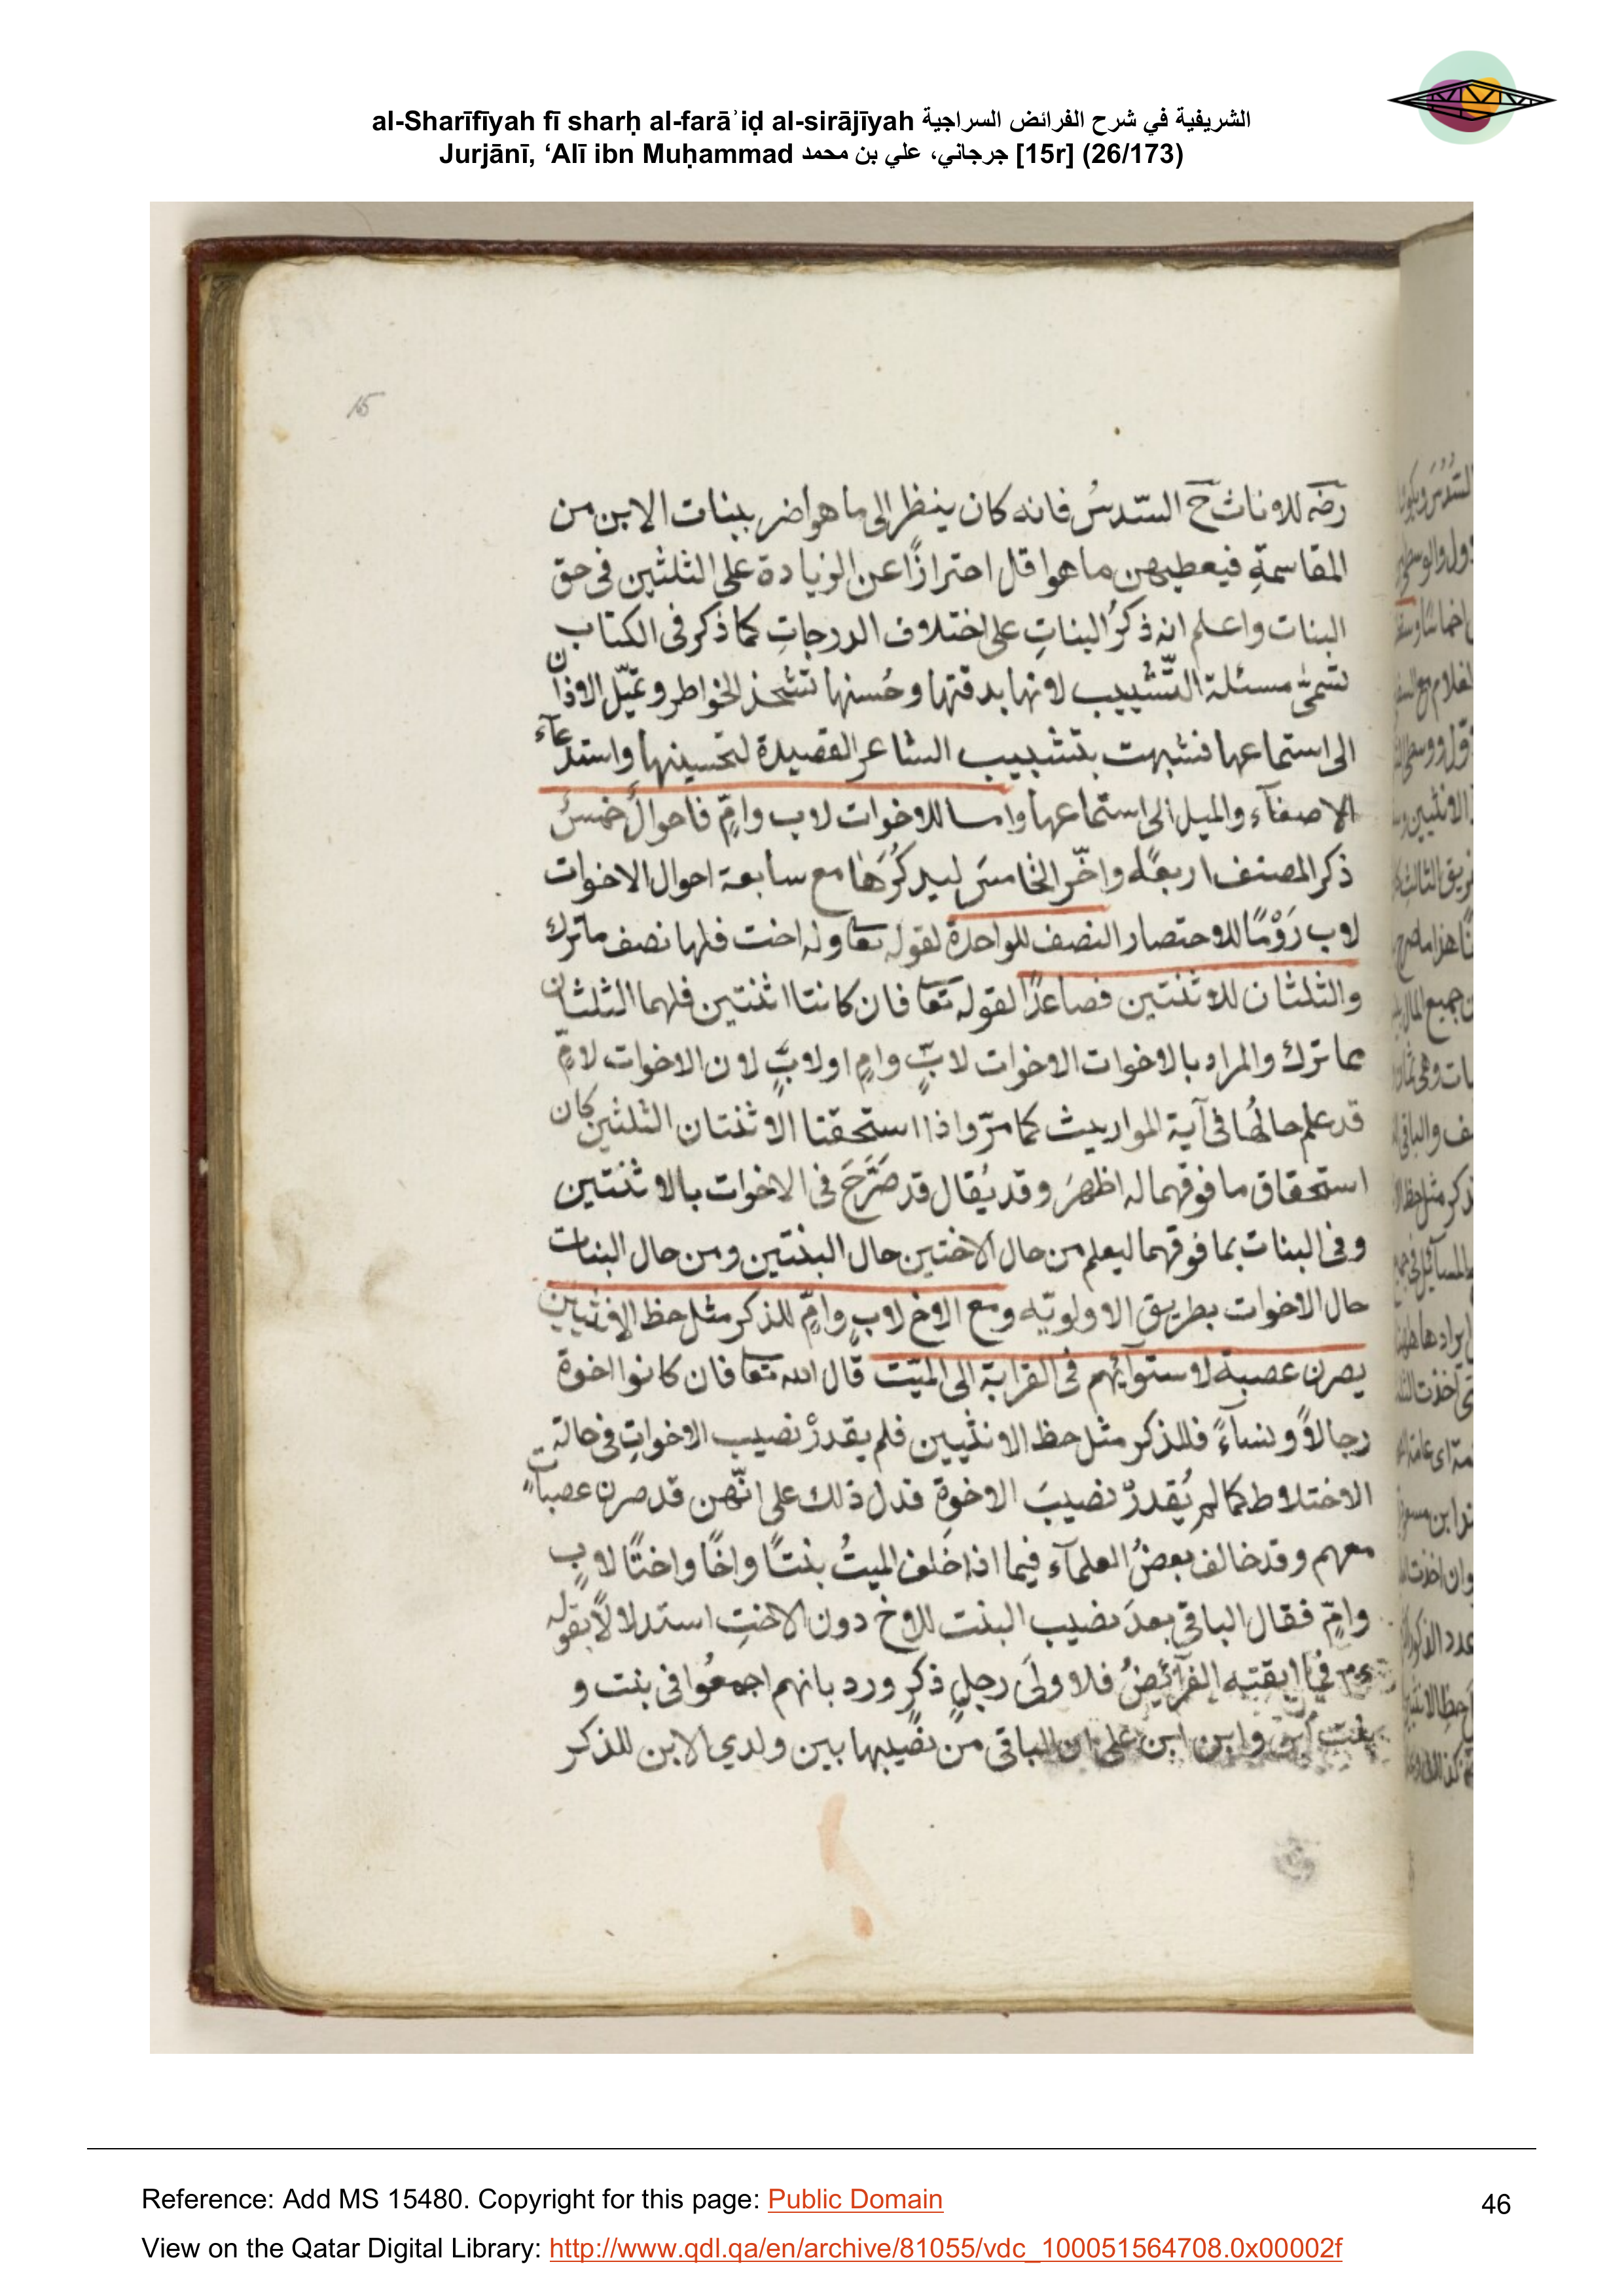 al-Sharīfīyah fī sharḥ al-farāʾiḍ al-sirājīyah الشريفية في شرح الفرائض السراجية
Jurjānī, ‘Alī ibn Muḥammad جرجاني، علي بن محمد [15r] (26/173)
15
رضه للاناث ح السّدسُ فانه كان ينظر الى ما هو اضر ببنات الابن من
المقاسمةِ فيعطيهن ما هو اقل احترازًا عن الزيادة على الثلثين فى حق
البنات واعلم انه ذكرُ البناتِ على اختلاف الدرجاتِ كما ذكر فى الكتاب
تسمىّ مسئلة التّشبيب لانها بدقتها وحُسنها تشحذ الخواطر وتميّل الاذان
الى استماعها فشبهت بتشبيب الشاعر القصيدة لتحسينها واستدعآء
الاصغآء والميل الى استماعها واما للاخوات لاب وامٍّ فاحوالٌ خمسٌ
ذكر المصنف اربعًه واخّر الخامسَ ليذكُرَها مع سابعة احوال الاخوات
لاب رَوْمًا للاختصار النصف للواحدة لقوله تعا وله اخت فلها نصف ما ترك
والثلثان للاثنتين فصاعدًا لقوله تعا فان كانتا اثنتين فلهما الثلثان
مما ترك والمراد بالاخوات الاخوات لابٍّ وامٍ او لابٍّ لان الاخوات لامٍّ
قد علم حالهُا فى آية المواريث كما مرّ واذا استحقتا الاثنتان الثلثين كان
استحقاق ما فوقهما له اظهرَ وقد يُقال قد صَرَّحَ فى الاخوات بالاثنتين
وفى البنات بما فوقهما ليعلم من حال الاختين حال البنتين ومن حال البنات
حال الاخوات بطريق الاولويّه ومع الاخ لابٍ وامٍّ للذكر مثل حظ الانثيين
يصرن عصبة لاستوآئهم فى القرابة الى الميّت قال الله تعا فان كانوا اخوة
رجالاً ونساءً فللذكر مثل حظ الانثيين فلم يقدرْ نصيب الاخواتِ فى حالة
الاختلاط كما لم يُقدرْ نصيبَ الاخوةِ فدل ذلك على انّهن قد صرن عصباتٍ
معهم وقد خالف بعضُ العلمآء فيما اذا خلف الميتُ بنتًا واخًا واختًا لابٍ
وامٍّ فقال الباقى بعدَ نصيب البنت للاخ دون الاختِ استدلالاً بقوله
عم فما ابقته الفرآئضُ فلاولىَ رجلٍ ذكرٍ ورد بانهم اجمعُوا فى بنت و
بنت ابن وابن ابن على ان الباقى من نصيبها بين ولدي الابن للذكر
Reference: Add MS 15480. Copyright for this page: Public Domain
46
View on the Qatar Digital Library: http://www.qdl.qa/en/archive/81055/vdc_100051564708.0x00002f